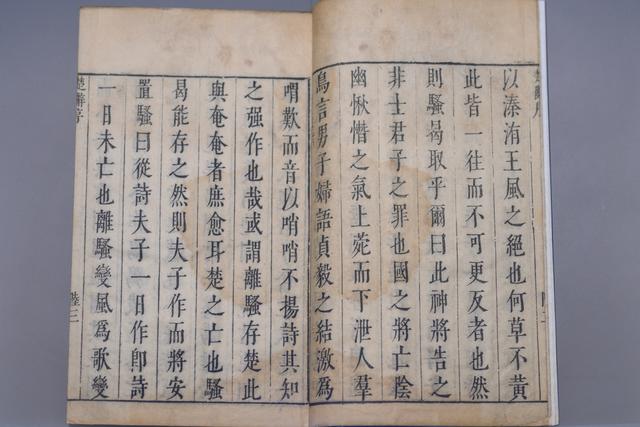 以溱洧王風之絕也何草不黃
此皆一往而不可更反者也然
則騷曷取乎爾曰此神將告之
非士君子之罪也國之將亡陰
幽愀憯之氣上薨而下泄人羣
鳥言男子婦語貞毅之結激為
喟歎而音以哨哨不揚詩其知
之强作也哉或謂離騷存楚此
與奄奄者庶愈耳楚之亡也騷
曷能存之然則夫子作而將安
置騷曰從詩夫子一日作卽詩
一日未亡也離騷變風為歌變
楚辭序
陸三